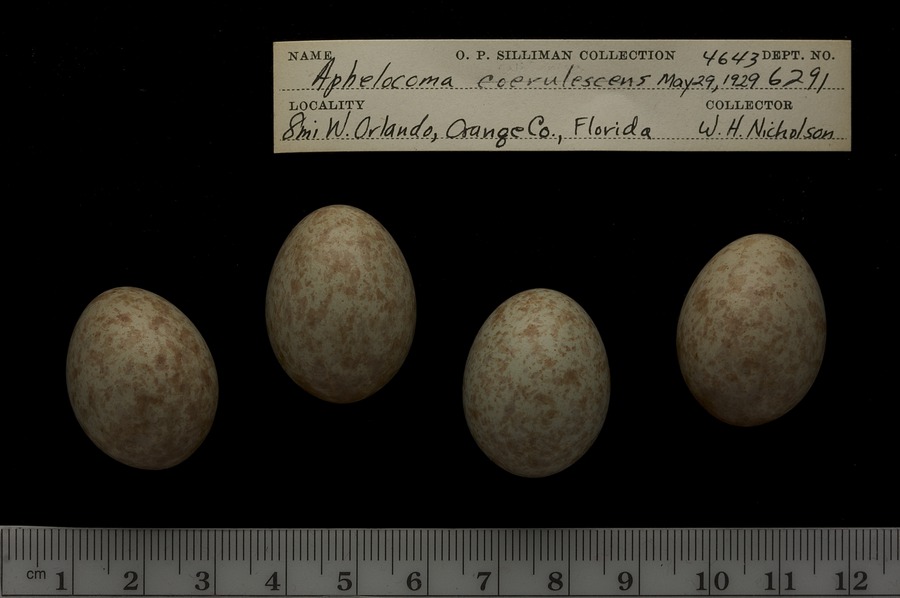 NAME O. P. SILLIMAN COLLECTION 4643 DEPT. NO.
Aphelocoma coerulescens May 29, 1929 6291
LOCALITY COLLECTOR
8mi W. Orlando, Orange Co., Florida W. H. Nicholson
cm 1 2 3 4 5 6 7 8 9 10 11 12